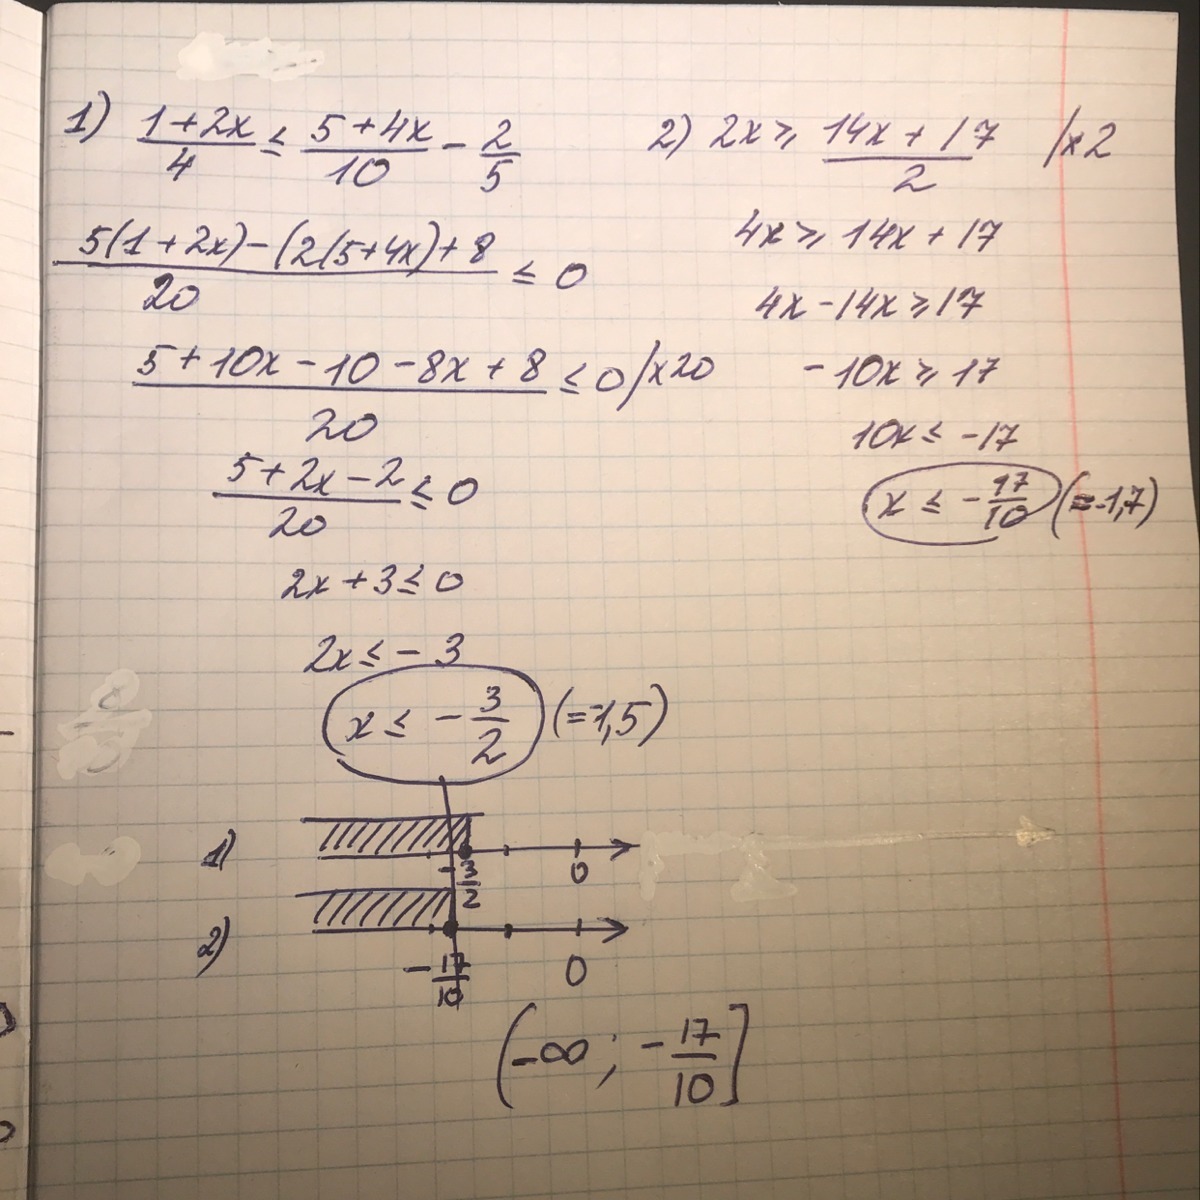 1) (1+2x)/4 ≤ (5+4x)/10 - 2/5
(5(1+2x)-(2(5+4x)+8)/20 ≤ 0
(5+10x-10-8x+8)/20 ≤ 0 /x20
(5+2x-2)/20 ≤ 0
2x+3 ≤ 0
2x ≤ -3
x ≤ -3/2 (=-1,5)
2) 2x ⩾ (14x+17)/2 /x2
4x ⩾ 14x+17
4x-14x ⩾ 17
-10x ⩾ 17
10x ≤ -17
x ≤ -17/10 (=-1,7)
1) -3/2 0
2) -17/10 0
(-∞; -17/10]